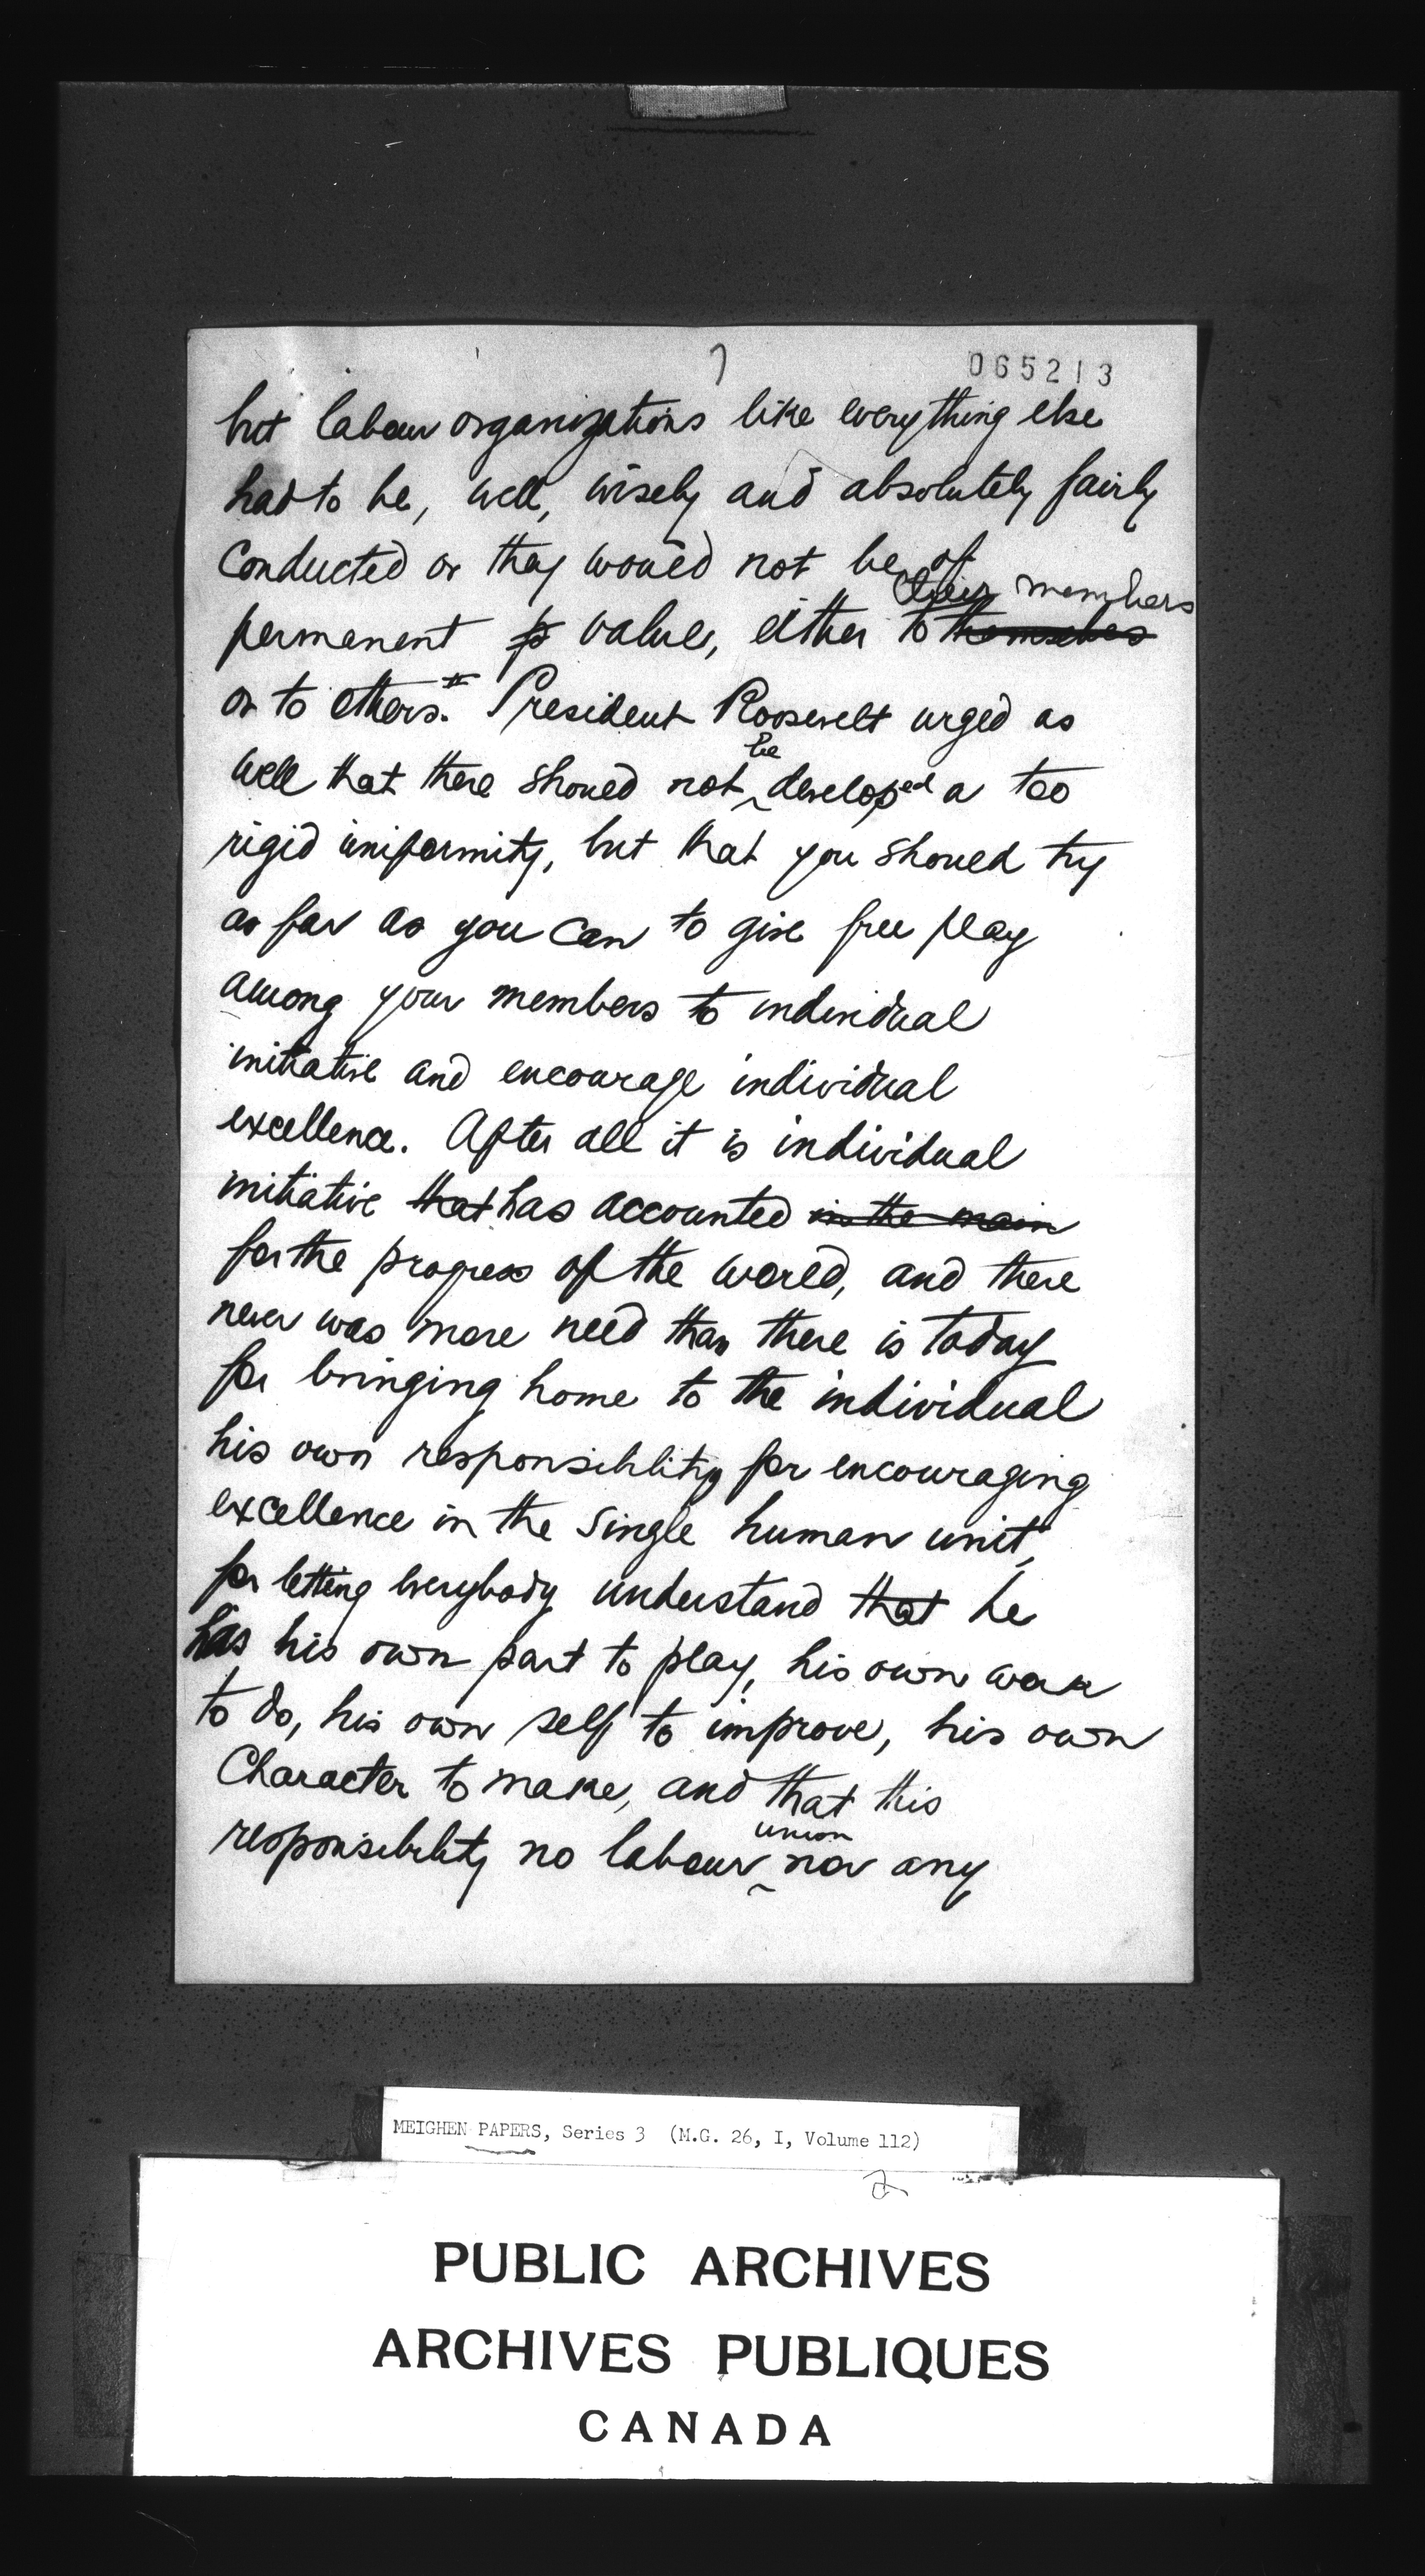 7
065213
but labour organizations like everything else
had to be, well, wisely and absolutely fairly
conducted or they would not be of
their members
permanent p value, either to themselves
or to others." President Roosevelt urged as
be
well that there should not developed a too
rigid uniformity, but that you should try
as far as you can to give free play
among your members to individual
initiative and encourage individual
excellence. After all it is individual
initiative that has accounted in the main
for the progress of the world, and there
never was more need than there is today
for bringing home to the individual
his own responsibility for encouraging
excellence in the single human unit,
for letting everybody understand that he
has his own part to play, his own work
to do, his own self to improve, his own
character to make, and that this
union
responsibility no labour nor any
MEIGHEN PAPERS, Series 3 (M.G. 26, I, Volume 112)
PUBLIC ARCHIVES
ARCHIVES PUBLIQUES
CANADA